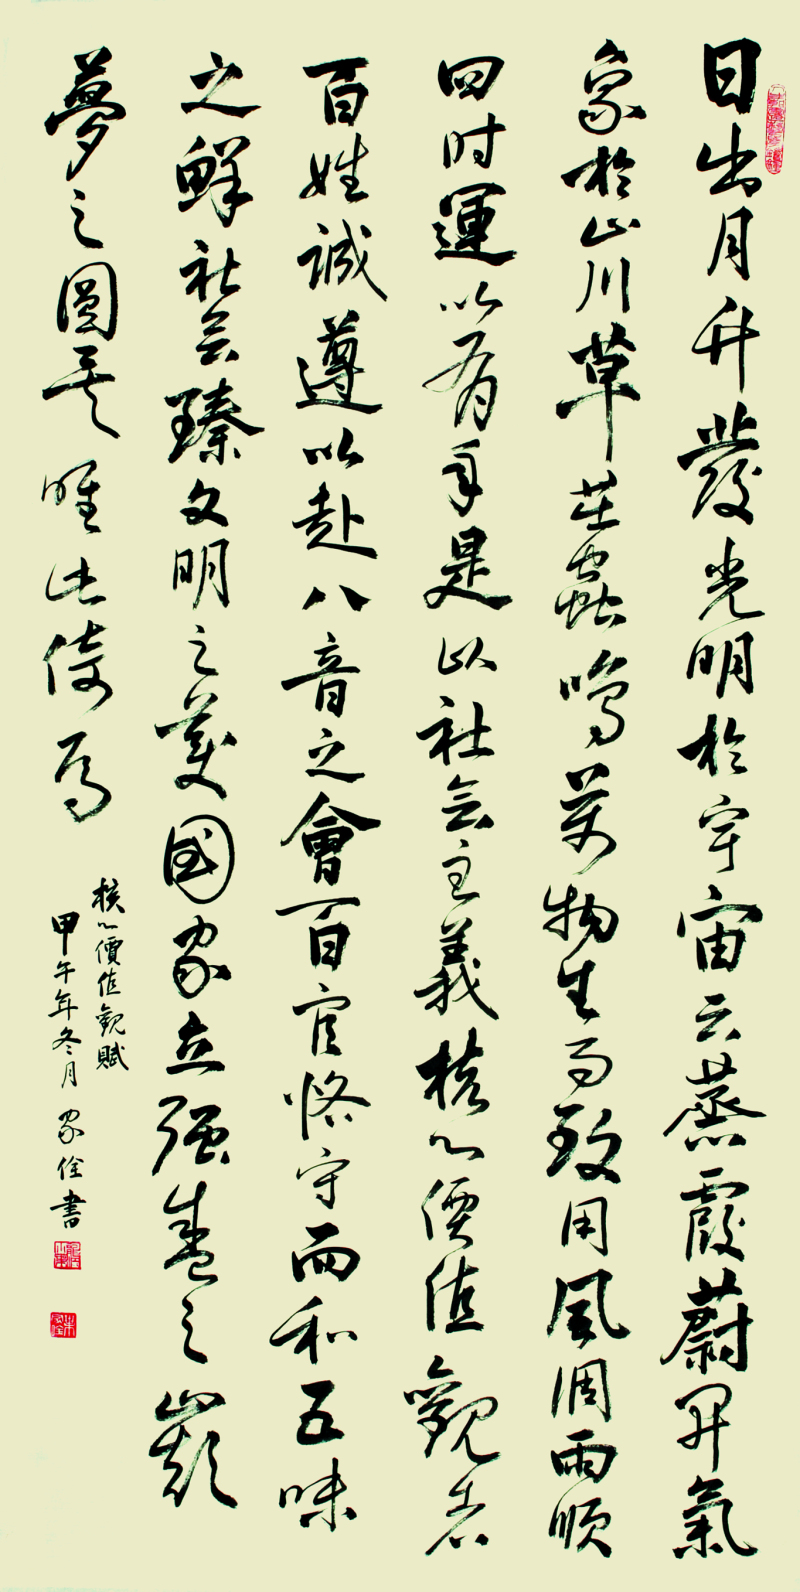 日出月升發光明於宇宙云蒸霞蔚開氣
象於山川草茁蟲鳴萬物生而致用風調雨順
四时運以有年是以社会主義核心價值觀者
百姓誠遵以赴八音之會百官恪守而和五味
之鮮社会臻文明之美國家立强盛之巔
夢之圓矣唯此倚焉
核心價值觀賦
甲午年冬月家佺書